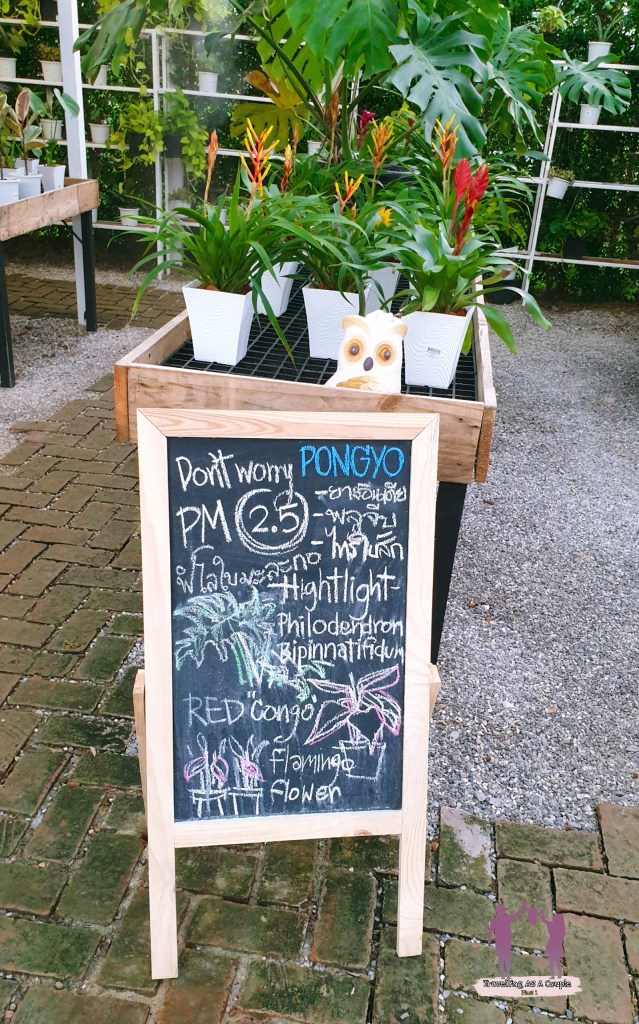 Don't worry PONGYO
PM 2.5
-ยางอินเดีย
-พลูจีบ
-ไทรใบสัก
ฟิโลใบมะละกอ
-Hightlight-
Philodendron
Bipinnatifidum
RED "Congo"
flamingo
flower
Travelling As a Couple